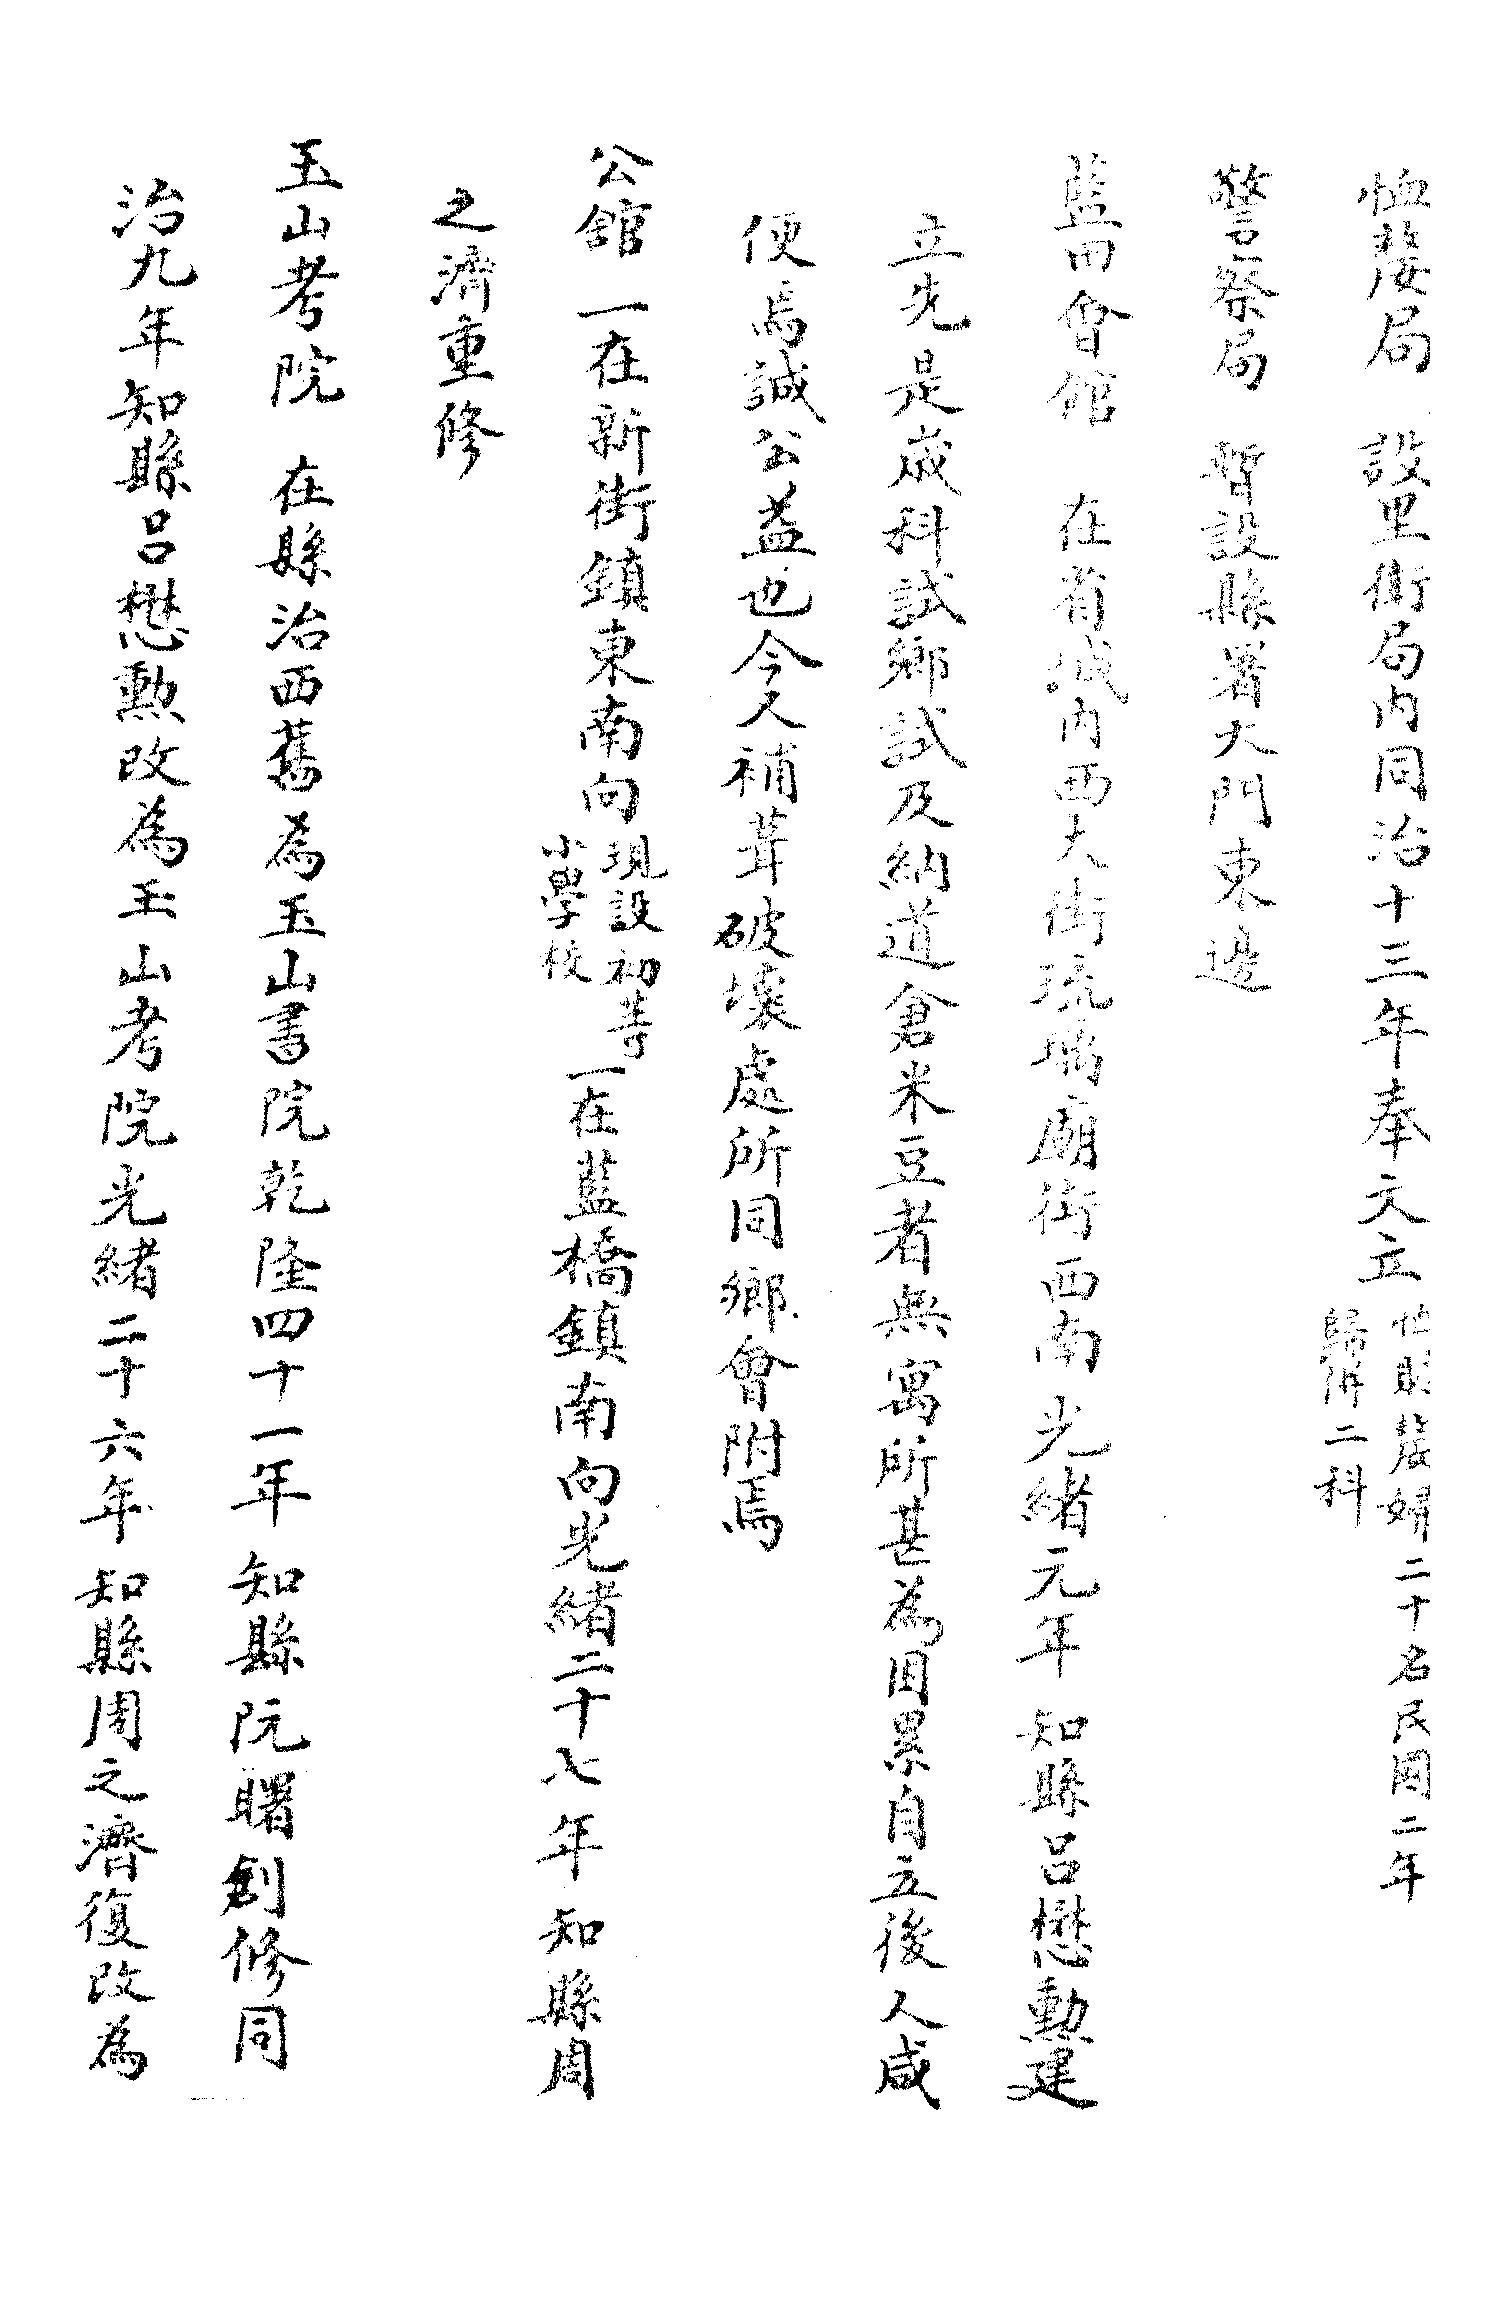 恤嫠局　設里街局内同治十三年奉文立恤助嫠婦二十名民國二年
歸併二科
警察局　暫設縣署大門東邊
藍田會館　在省城内西大街琉璃廟街西南光緒元年知縣呂懋勲建
立先是歲科試鄉試及納道倉米豆者無寓所甚為困累自立後人咸
便焉誠公益也今又補葺破壞處所同鄉會附焉
公舘　一在新街鎮東南向現設初等
小學校
一在藍橋鎮南向光緒二十七年知縣周
之濟重修
玉山考院　在縣治西舊為玉山書院乾隆四十一年知縣阮曙創修同
治九年知縣呂懋勲改為玉山考院光緒二十六年知縣周之濟復改為